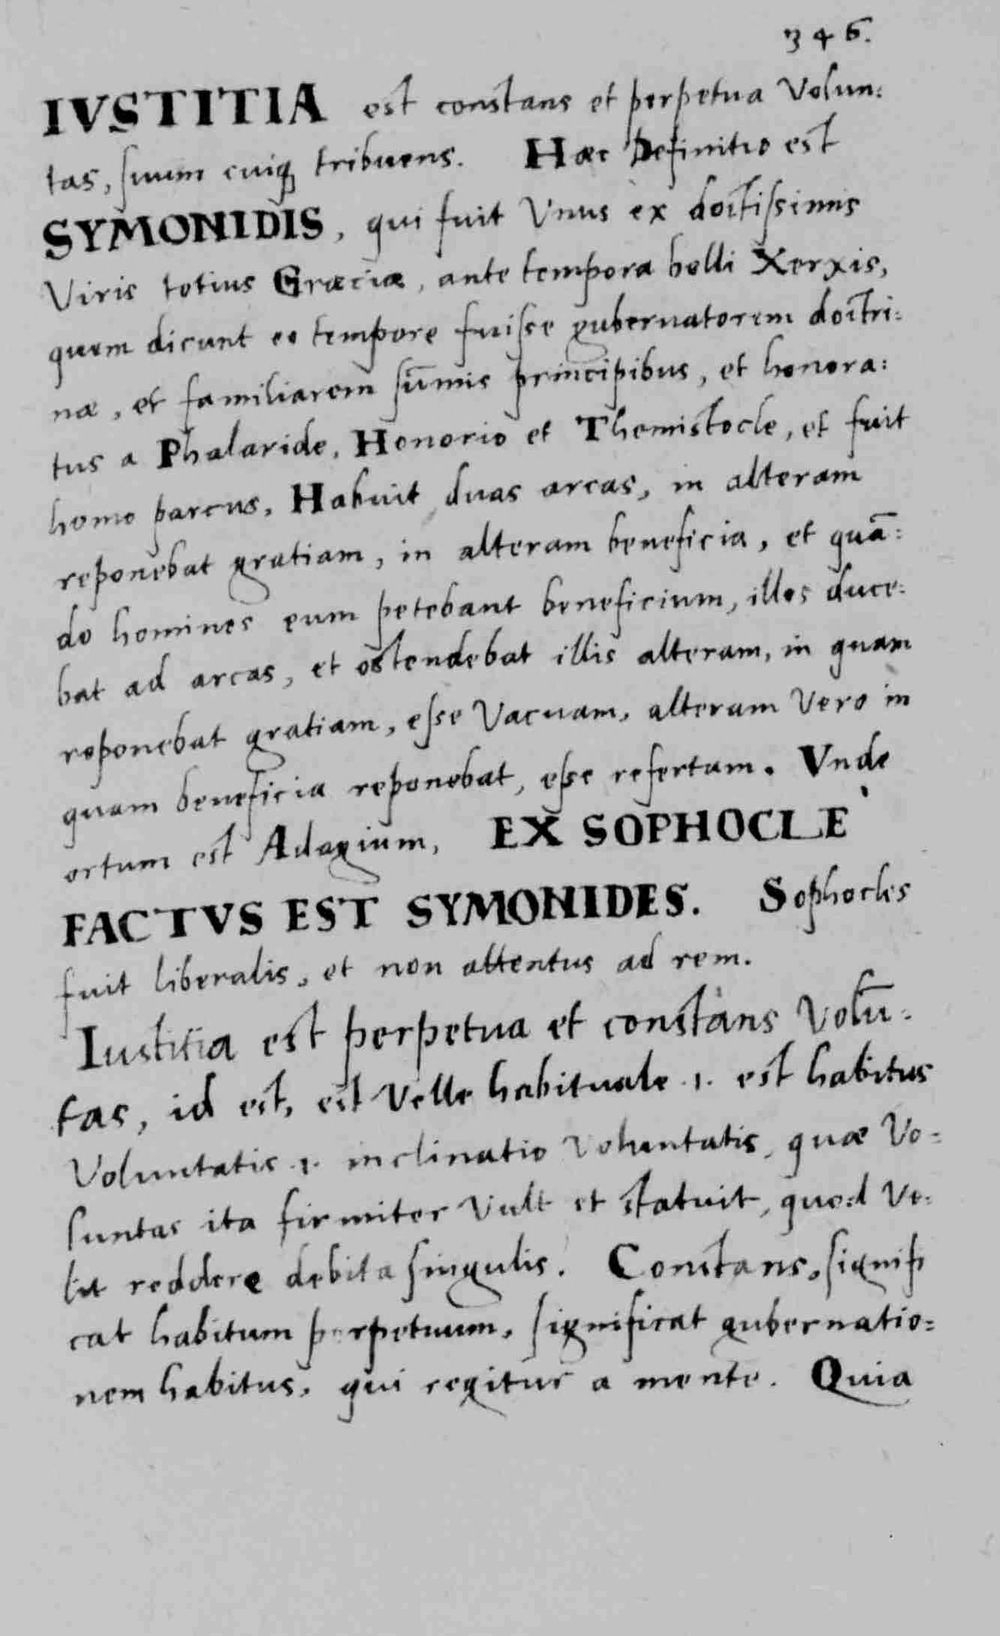 346.
IVSTITIA est constans et perpetua Volun:
tas, suum cuiq; tribuens. Haec Definitio est
SYMONIDIS, qui fuit Vnus ex doctissimis
Viris totius Graeciæ, ante tempora belli Xerxis,
quem dicunt eo tempore fuisse gubernatorem doctri:
næ, et familiarem sum̄is principibus, et honora:
tus a Phalaride, Honorio et Themistocle, et fuit
homo parcus. Habuit duas arcas, in alteram
reponebat gratiam, in alteram beneficia, et quā:
do homines eum petebant beneficium, illos duce:
bat ad arcas, et ostendebat illis alteram, in quam
reponebat gratiam, esse Vacuam, alteram Vero in
quam beneficia reponebat, esse refertam. Vnde
ortum est Adagium, EX SOPHOCLE
FACTVS EST SYMONIDES. Sophocles
fuit liberalis, et non attentus ad rem.
Iustitia est perpetua et constans Volū:
tas, id est, est Velle habituale .1. est habitus
Voluntatis .1. inclinatio Voluntatis, quæ Vo:
luntas ita firmiter Vult et statuit, quod Ve:
lit reddere debita singulis. Constans, signifi
cat habitum perpetuum, significat gubernatio:
nem habitus, qui regitur a mente. Quia